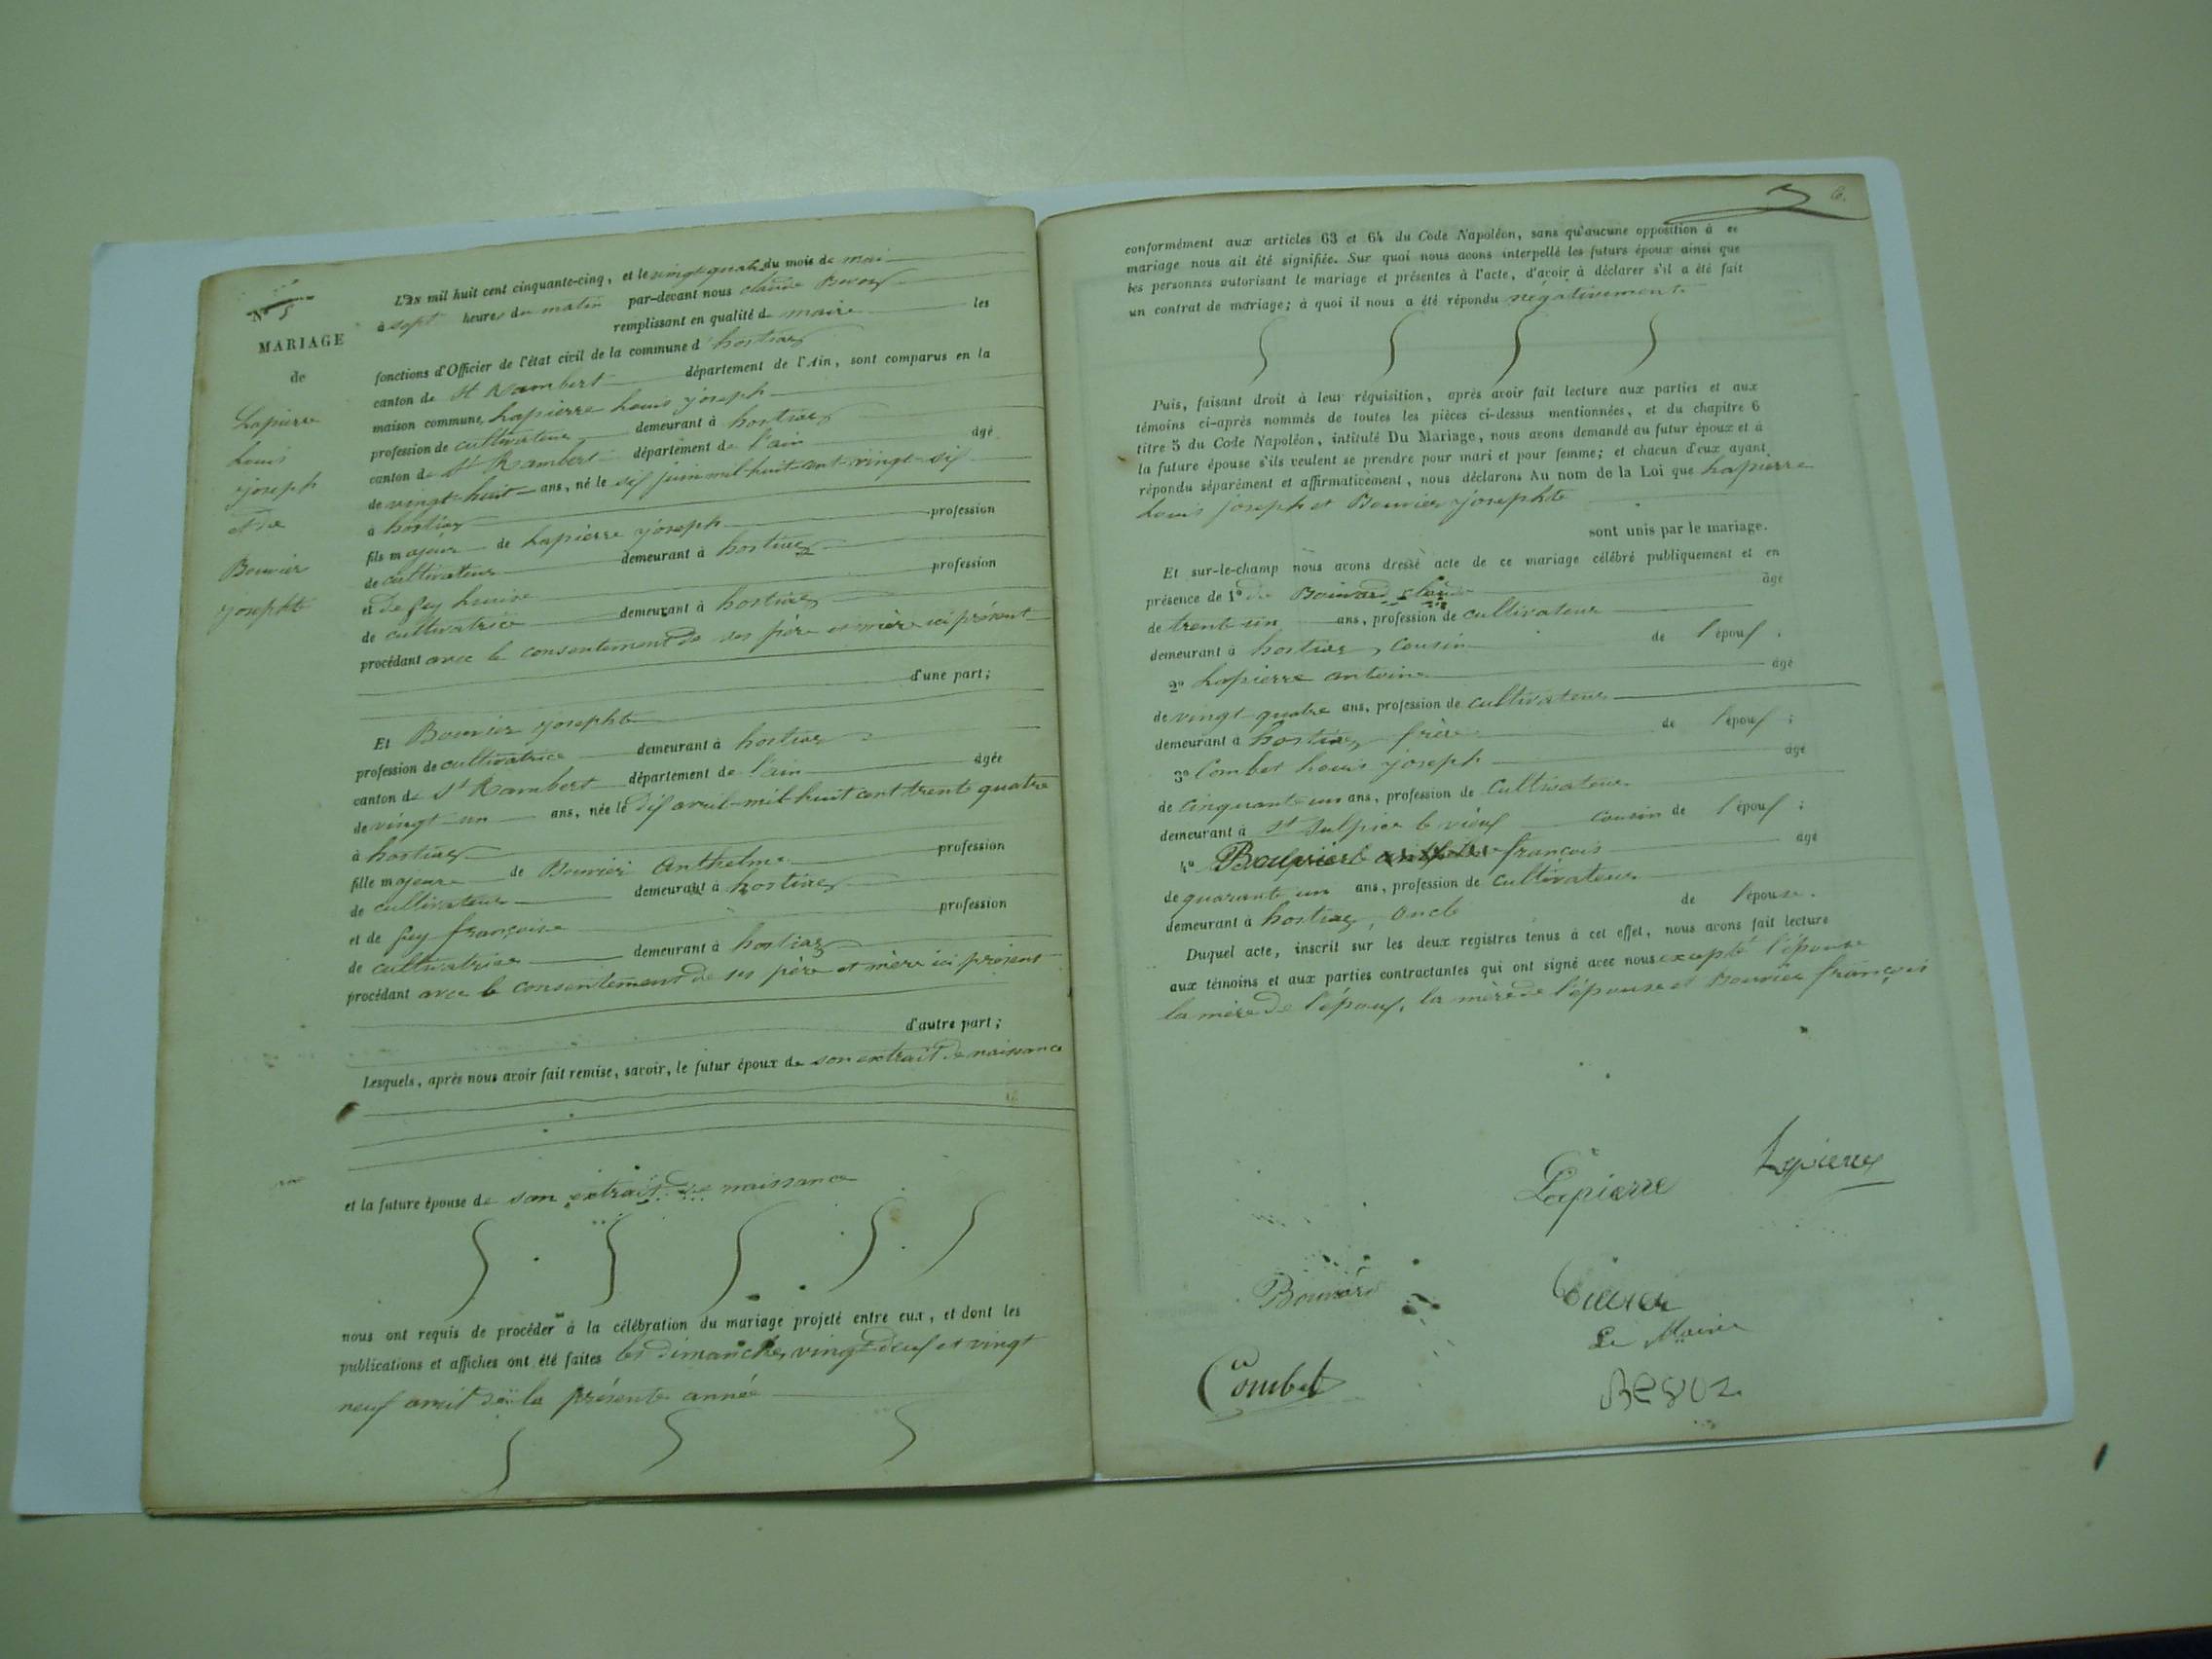 N° 5
MARIAGE
de
Lapierre
Louis
joseph
et de
Bouvier
josephte
L'an mil huit cent cinquante-cinq, et le vingt quatre du mois de mai
à sept heures du matin par-devant nous claude
remplissant en qualité de maire les
fonctions d'Officier de l'état civil de la commune d'hostiaz
canton de St Rambert département de l'Ain, sont comparus en la
maison commune, Lapierre Louis joseph
profession de cultivateur demeurant à hostiaz
canton de St Rambert département de l'ain âgé
de vingt huit ans, né le dix juin mil huit cent vingt six
à hostiaz
fils majeur de Lapierre joseph profession
de cultivateur demeurant à hostiaz
et de fey Louise profession
de cultivatrice demeurant à hostiaz
procédant avec le consentement de ses père et mère ici présent
d'une part;
Et Bouvier josephte
profession de cultivatrice demeurant à hostiaz
canton de St Rambert département de l'ain âgée
de vingt un ans, née le dix avril mil huit cent trente quatre
à hostiaz
fille majeure de Bouvier Anthelme profession
de cultivateur demeurant à hostiaz
et de fey françoise profession
de cultivatrice demeurant à hostiaz
procédant avec le consentement de ses père et mère ici présent
d'autre part;
Lesquels, après nous avoir fait remise, savoir, le futur époux de son extrait de naissance
et la future épouse de son extrait de naissance
nous ont requis de procéder à la célébration du mariage projeté entre eux, et dont les
publications et affiches ont été faites les dimanches vingt deux et vingt
neuf avril de la présente année
6.
conformément aux articles 63 et 64 du Code Napoléon, sans qu'aucune opposition à ce
mariage nous ait été signifiée. Sur quoi nous avons interpellé les futurs époux ainsi que
les personnes autorisant le mariage et présentes à l'acte, d'avoir à déclarer s'il a été fait
un contrat de mariage; à quoi il nous a été répondu négativement
Puis, faisant droit à leur réquisition, après avoir fait lecture aux parties et aux
témoins ci-après nommés de toutes les pièces ci-dessus mentionnées, et du chapitre 6
titre 5 du Code Napoléon, intitulé Du Mariage, nous avons demandé au futur époux et à
la future épouse s'ils veulent se prendre pour mari et pour femme; et chacun d'eux ayant
répondu séparément et affirmativement, nous déclarons Au nom de la Loi que Lapierre
Louis joseph et Bouvier josephte
sont unis par le mariage.
Et sur-le-champ nous avons dressé acte de ce mariage célébré publiquement et en
présence de 1° de Bouvard claude âgé
de trente un ans, profession de cultivateur
demeurant à hostiaz, cousin de l'époux.
2° Lapierre antoine âgé
de vingt quatre ans, profession de cultivateur
demeurant à hostiaz frère de l'époux;
3° Combet Louis joseph âgé
de cinquante un ans, profession de cultivateur
demeurant à St Sulpice le vieux cousin de l'époux;
4° françois âgé
de quarante un ans, profession de cultivateur
demeurant à hostiaz, oncle de l'épouse.
Duquel acte, inscrit sur les deux registres tenus à cet effet, nous avons fait lecture
aux témoins et aux parties contractantes qui ont signé avec nous excepté l'épouse
la mère de l'époux, la mère de l'épouse et Bouvier françois
Lapierre Lapierre
Bouvard
Le Maire
Combet